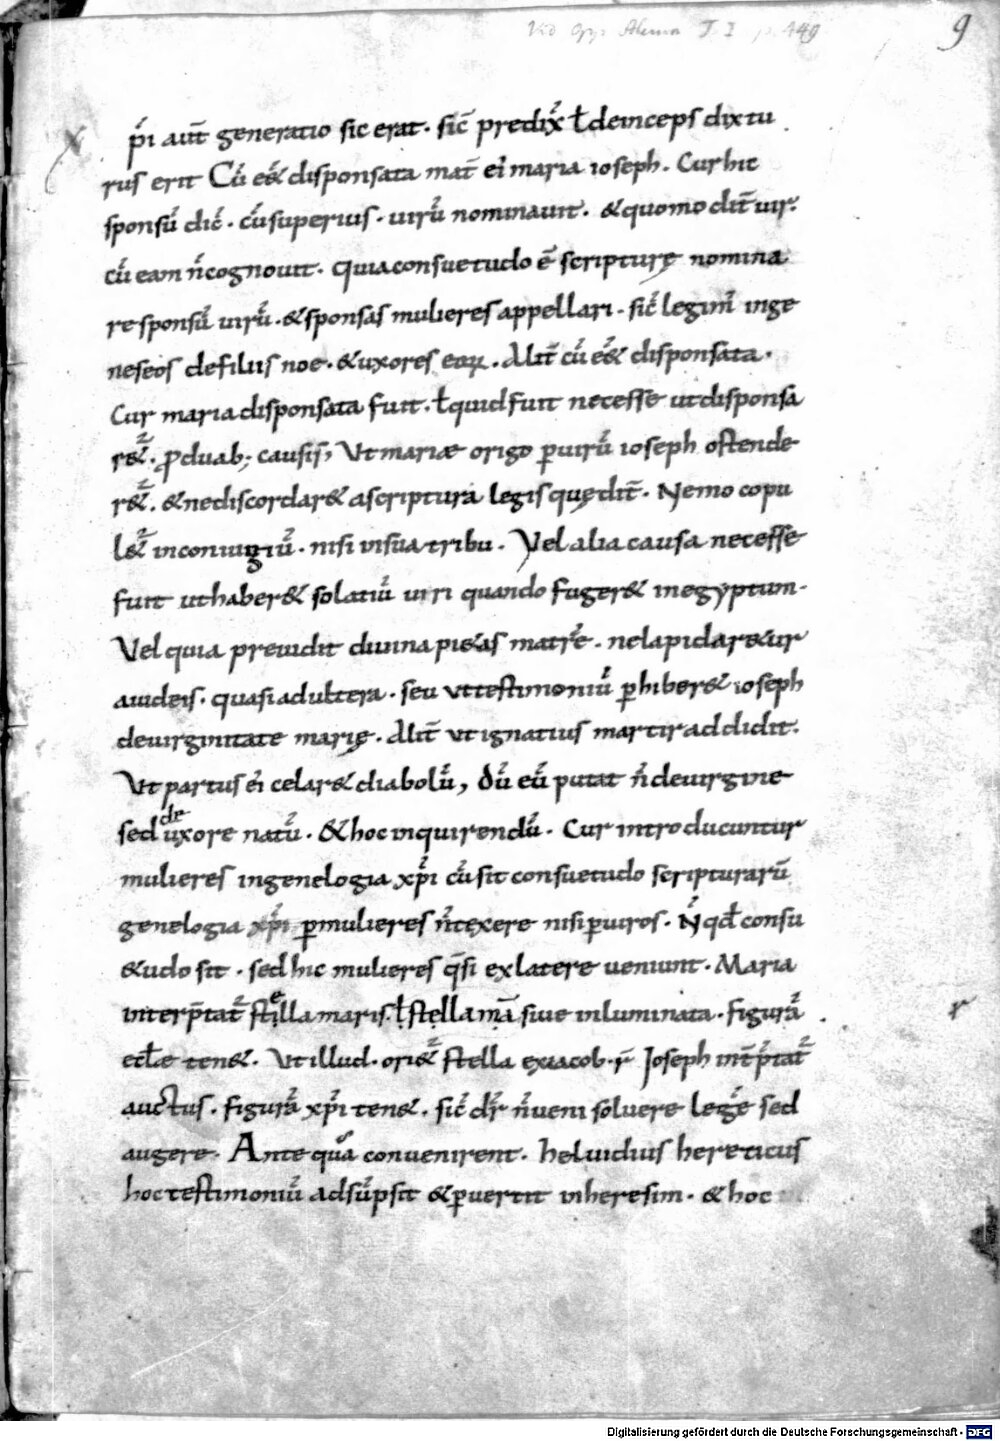 9
X p̄i aut̄ generatio sic erat. sic̄ predix̄ ł deinceps dixtu
rus erit Cū eēt disponsata mat̄ ei maria ioseph. Cur hic
sponsū dic̄. cū superius. uirū nominauit. & quomodo dit̄ uir.
cū eam n̄ cognouit. Quia consuetudo ē scripturę nomina
re sponsū uirū. & sponsas mulieres appellari. sic̄ legim̄ inge
neseos de filiis noe. & uxores eoꝝ. Alit̄ cū eēt disponsata.
Cur maria disponsata fuit. ł quid fuit necesse ut disponsa
r&̄. ꝓ duab; causis, Ut mariæ origo ꝑ uirū ioseph ostende
r&̄. & ne discordar& a scriptura legis quę dit̄. Nemo copu
l&̄ in coniugiū. nisi in sua tribu. Vel alia causa necesse
fuit ut haber& solatiū uiri quando fuger& in egyptum.
Vel quia preuidit diuina pi&as matrē. ne lapidar&ur
a iudeis. quasi adultera. seu ut testimoniū ꝑhiber& ioseph
de uirginitate marię. Alit̄ ut ignatius martir addidit.
Ut partus ei celar& diabolū, dū eū putat n̄ de uirgine
sed de uxore natū. & hoc inquirendū. Cur introducuntur
mulieres in genelogia xp̄i cū sit consuetudo scripturarū
genelogia xp̄i ꝑ mulieres n̄ texere nisi ꝑ uiros. N̄ qđ consu
&udo sit. sed hic mulieres q̄si ex latere ueniunt. Maria
interp̄tat̄ stella maris. ł stella mā siue inluminata. figurā
eccłæ ten&. Ut illud. ori&̄ stella ex iacob. r̄ Ioseph int̄p̄tat̄
auctus. figurā xp̄i ten&. sic̄ dr̄ n̄ ueni soluere legē sed
augere. Ante quā conuenirent. heluidius hereticus
hoc testimoniū adsūpsit & ꝑuertit in heresim. & hoc
r
Digitalisierung gefördert durch die Deutsche Forschungsgemeinschaft - DFG